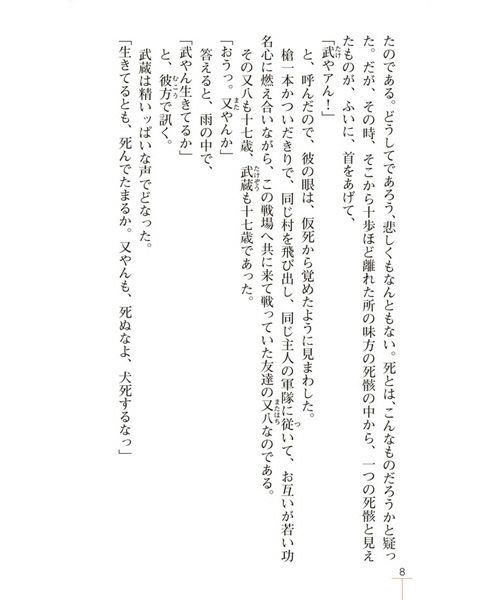 たのである。どうしてであろう、悲しくもなんともない。死とは、こんなものだろうかと疑っ
た。だが、その時、そこから十歩ほど離れた所の味方の死骸の中から、一つの死骸と見え
たものが、ふいに、首をあげて、
「武やアん！」
と、呼んだので、彼の眼は、仮死から覚めたように見まわした。
槍一本かついだきりで、同じ村を飛び出し、同じ主人の軍隊に従いて、お互いが若い功
名心に燃え合いながら、この戦場へ共に来て戦っていた友達の又八なのである。
その又八も十七歳、武蔵も十七歳であった。
「おうっ。又やんか」
答えると、雨の中で、
「武やん生きてるか」
と、彼方で訊く。
武蔵は精いッぱいな声でどなった。
「生きてるとも、死んでたまるか。又やんも、死ぬなよ、犬死するなっ」
8